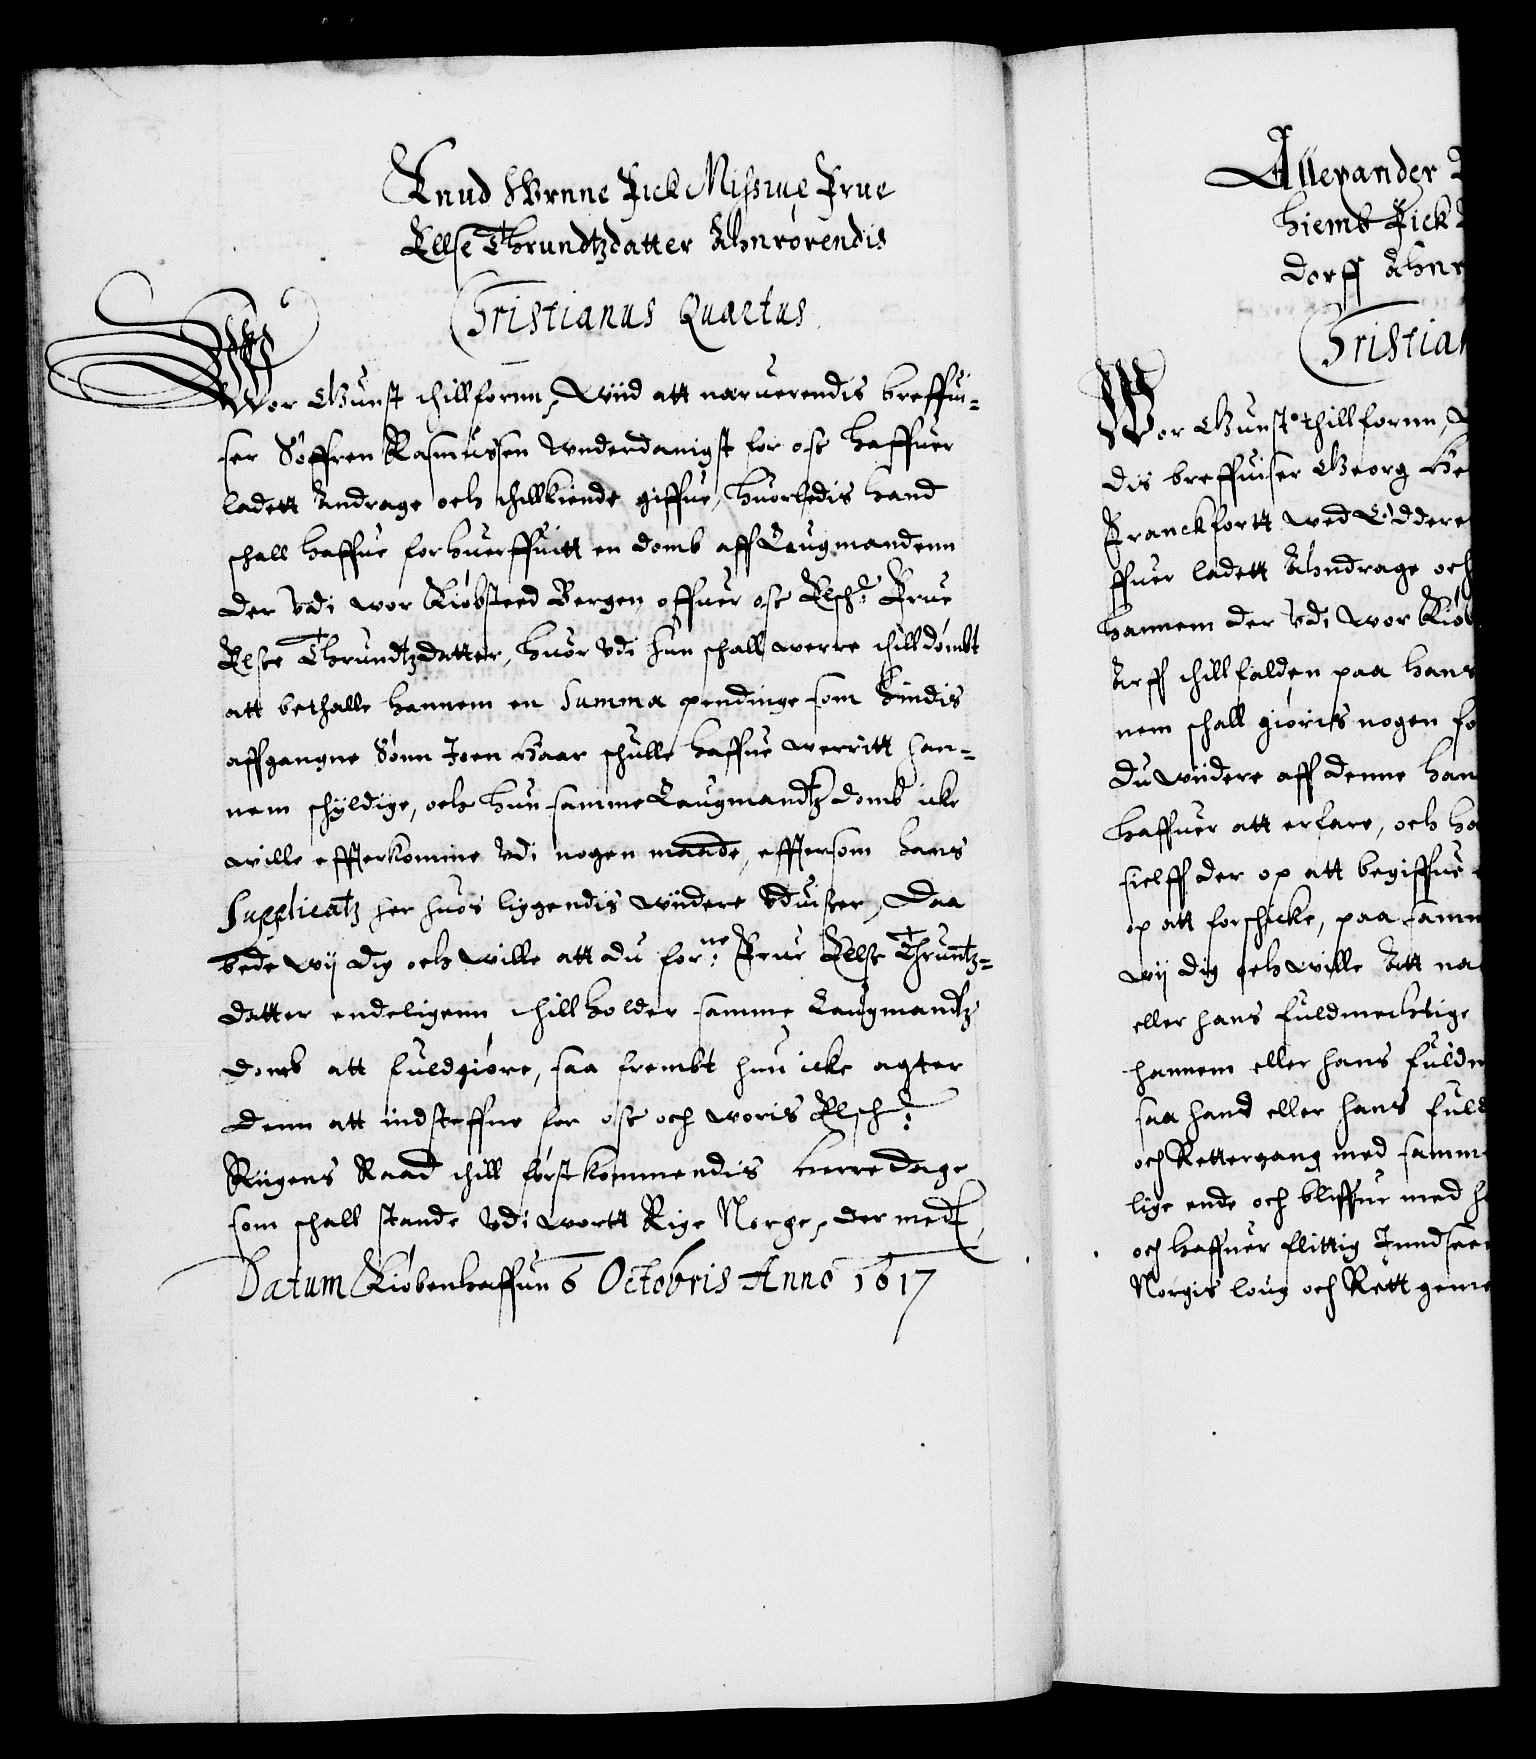 Knud Wrnne Fick Missiue Frue
Ellse Thrundtzdatter Ahnrörendis
Christianus Quartus
Wor Gunst thillfornn, Wiid att næruerendis breffui-
ser Söffren Rasmussen Wnderdanigst for oss haffuer
ladett Andrage och thillkiende giffue, huorledis hand
schall haffue forhuerffuitt en domb aff Laugmandenn
der Vdi wor Kiöbsteed Bergen offuer oss Elsch: Frue
Elsse Thrundtzdatter, huor Vdi hun schall werre thilldömbt
att bethalle hannem en Summa pendinge som hindis
affgangne Sönn Joen Haar schulle haffue werritt han-
nem schyldige, och hun samme Laugmandtz domb icke
wille effterkomme Vdi nogen maade, efftersom hans
Supplicatz her huos liggendis wiidere Vduiszer, Daa
bede wij dig och wille att du forne: Frue Ellse Thruntz-
datter endeligenn thillholder samme Laugmandtz
domb att fuldgiöre, saa frembt hun icke agter
denn att indsteffne for oss och woris Elsch:
Riigens Raad thill förstkommendis herredage
som schall stande Vdi wortt Rige Norge, der med
Datum Kiöbenhaffun 6 Octobris Anno 1617
Allexander
hiemb Fick
dorff Ahnr
Christian
Wor Gunst thillfornn,
dis breffuiser Georg He
Franckfortt wed Odder
ffuer ladett Ahndrage och
hannem der Vdi wor Kiöb
Arff thillfalden paa hans
nem schall giöris nogen fo
du wiidere aff denne han
haffuer att erfare, och ha
sielff der op att begiffue
op att forschicke, paa samm
wij dig och wille Att na
eller hans fuldmechtige
hannem eller hans fuldm
saa hand eller hans fuld
och Rettergang med samme
lige ende och bliffue med h
och haffuer flittig Inndseen
Norgis loug och Rett geme